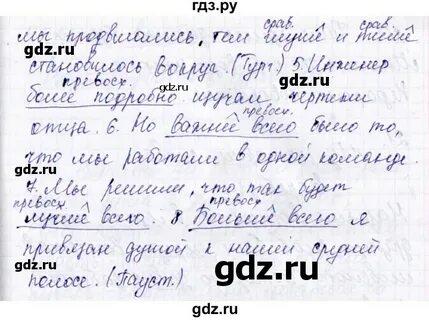 гдз.ру
срав. срав.
мы продвигались, тем глуше и тише
становилось вокруг. (Тург.) 5. Инженер
превосх.
более подробно изучал чертежи
превосх.
отца. 6. Но важней всего было то,
что мы работали в одной команде.
7. Мы решили, что так будет
превосх. превосх.
лучше всего. 8. Больше всего я
привязан душой к нашей средней
полосе. (Пауст.)
gdz.ru gdz.ru
gdz.ru gdz.ru
gdz.ru gdz.ru
gdz.ru gdz.ru